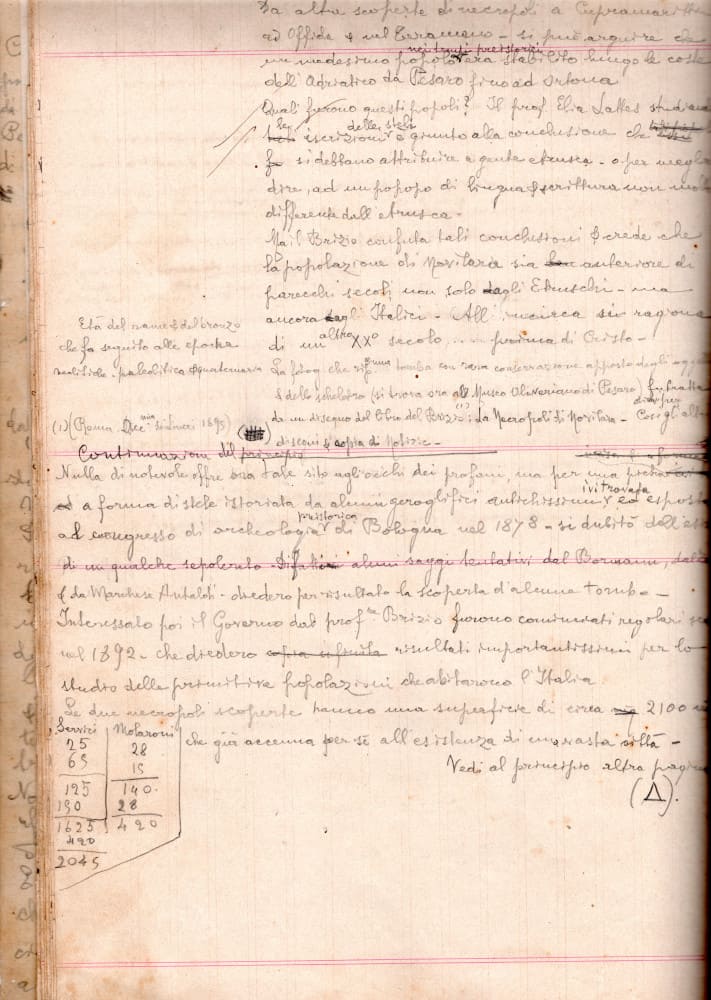 Da altre scoperte di necropoli a Cupramarittima
ad Offida & nel Teramano - si può arguire che
neolitici preistorici
un medesimo popolo era stabilito lungo le coste
dell'Adriatico da Pesaro fino ad Ortona
Quali furono questi popoli? Il prof. Elia Lattes studiando
delle stele
le iscrizioni è giunto alla conclusione che
si debbano attribuire a gente etrusca - o per meglio
dire, ad un popopo di lingua & scrittura non molto
differente dall'etrusca -
Ma il Brizio confuta tali conclusioni & crede che
la popolazione di Novilara sia anteriore di
parecchi secoli, non solo agli Etruschi - ma
ancora agli Italici - All'incirca si ragiona
di un altro XX° secolo ... prima di Cristo -
Età del rame & del bronzo
che fa seguito alle epoche
neolitiche - paleolitica & quaternaria
La fotog che tomba con rara conservazione apposta degli ogge
& dello scheletro (si trova ora al Museo Oliveriano di Pesaro) fu tratta
da un disegno del libro del Brizio (1): La Necropoli di Novilara - Così gli altri
diversi
disegni & copia di Notizie -
(1) (Roma. Lincei 1895)
Continuazione del principio
Nulla di notevole offre ora tale sito agli occhi dei profani, ma per una pietra
ivi trovata
a forma di stele istoriata da alcuni geroglifici antichissimi ed esposta
preistorica
al congresso di archeologia di Bologna nel 1878 - si dubitò dell'es
di un qualche sepolcreto - Difatti alcuni saggi tentativi del Bormann, dal
& da Marchese Antaldi - diedero per risultato la scoperta d'alcune tombe -
Interessato poi il Governo dal prof.re Brizio furono cominciati regolari sc
nel 1892 - che diedero copia infinita risultati importantissimi per lo
studio delle primitive popolazioni che abitarono l'Italia
Le due necropoli scoperte hanno una superficie di circa 2100 m
che già accenna per sé all'esistenza di una vasta città -
Vedi al principio altra pagina
(Δ).
Servici Molaroni
25 28
65 15
125 140.
150 28
1625 420
420
2045